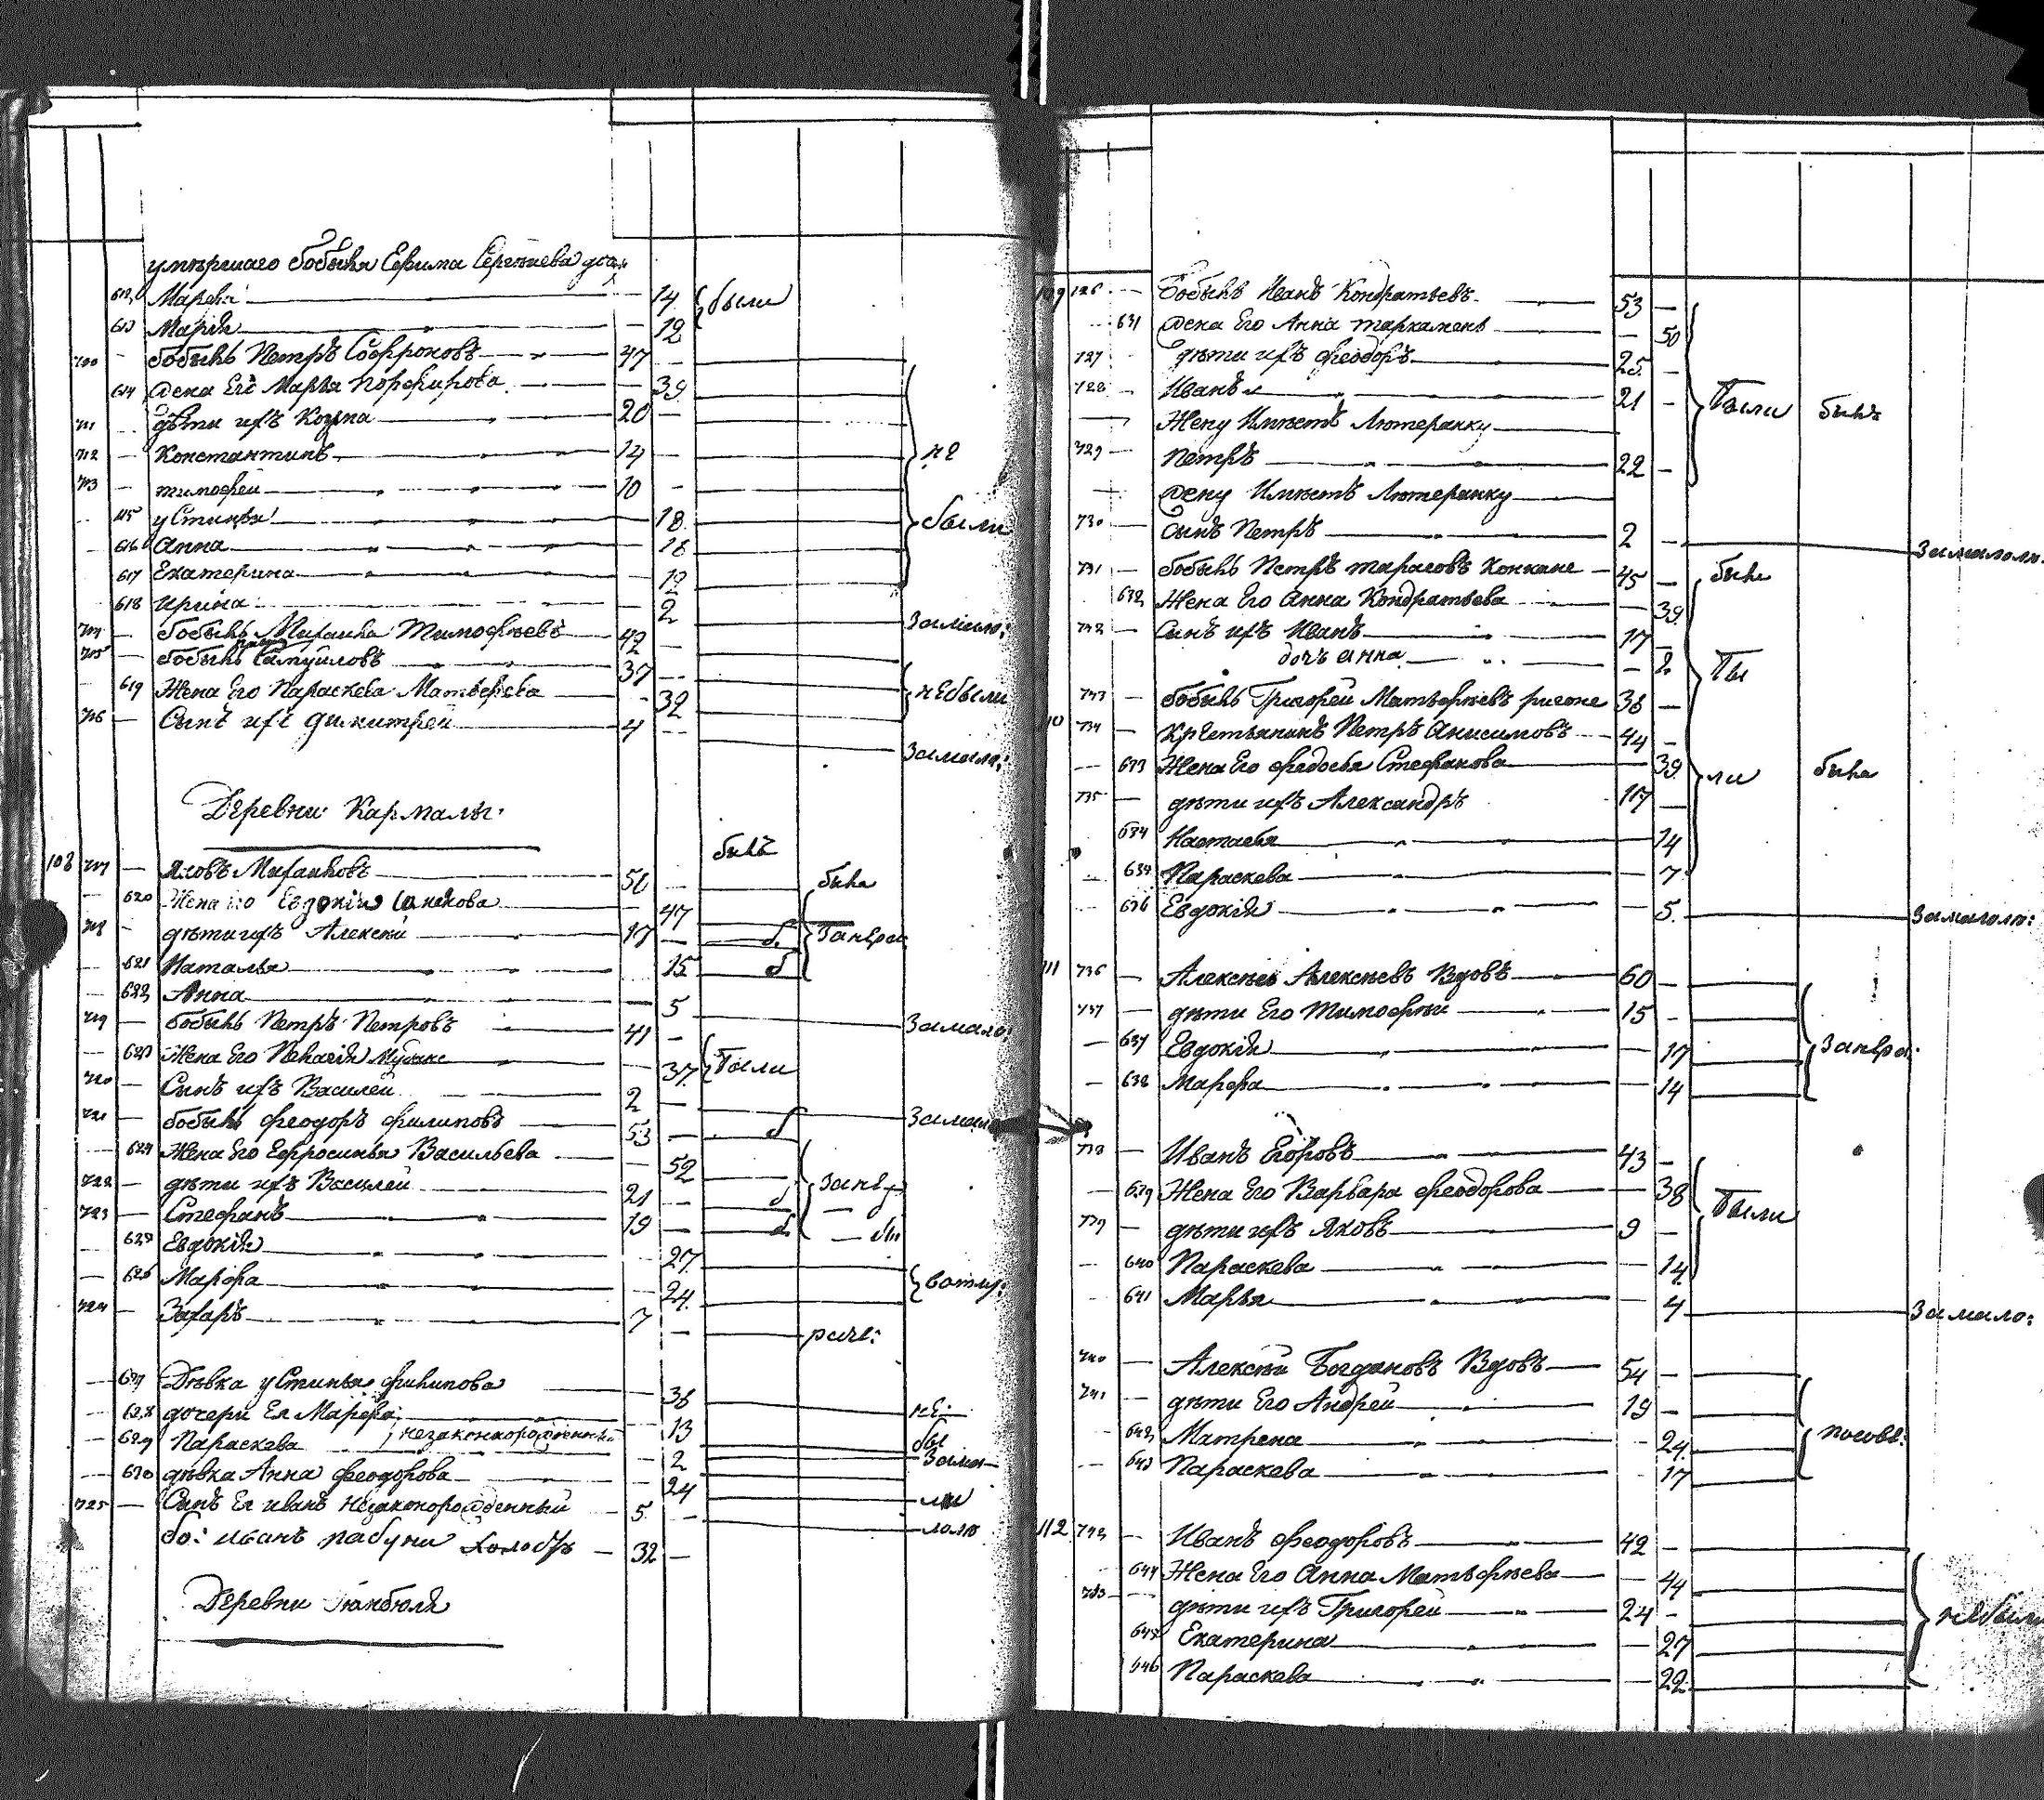 умершаго бобыля Ефима Сергѣева
612 Марѳа 14 были
613 Марія 12
710 бобыль Петръ Софроновъ 47
614 жена Его Марья Порфирова 39
711 дѣти ихъ Козма 20
712 Константинъ 14 не
713 тимофей 10
615 устинья 18 были
616 Анна 16
617 Екатерина 12
618 ирина 2
714 бобыль Михаила Тимофѣевъ 42
715 бобыль Самуиловъ 37
619 Жена Его Параскева Матвеева 32 небыли
716 Сынъ ихъ димитрей 4 замало:
Деревни Кармалы
былъ
108 717 Яковъ Михаиловъ 56 была
620 Жена Евдокия 47
718 дѣти ихъ Алексѣй 17 б.
621 Наталья 15 б
622 Анна 5 замало:
719 бобыль Петръ Петровъ 41
623 Жена Его Пелагія 37 Были
720 Сынъ ихъ Василей 2
721 бобыль феодоръ филиповъ 53 б
624 Жена Его Ефросинья Васильева 52
722 дѣти ихъ Василей 21 б
723 Стефанъ 19 б.
625 Евдокія 27
626 Марфа 24
724 Захаръ 7
627 Дѣвка устинья филипова 38 не
628 дочери Ея Марфа 13 бы
629 Параскева незаконнорожденныя 2
630 дѣвка Анна феодорова 24 ли
725 Сынъ Ея иванъ незаконорожденный 5
бо: иванъ 32
Деревни
109 726 Бобыль Иванъ Кондратьевъ 53
631 жена Его Анна 50
727 дѣти ихъ феодоръ 25
728 Иванъ 21 Были былъ
Жену Имѣетъ Лютеранку
729 Петръ 22
жену Имѣетъ Лютеранку
730 Сынъ Петръ 2 замалол:
731 бобыль Петръ тарасовъ 45
632 Жена Его Анна Кондратьева 39
732 Сынъ ихъ Иванъ 17
дочь анна 2 Бы
733 бобыль Григорей Матвѣевъ 38
110 734 Крестьянинъ Петръ Анисимовъ 44
633 Жена Его федосья Стефанова 39 ли была
735 дѣти ихъ Александръ 17
634 Настасья 14
Параскева 7
636 Евдокія 5 замалол:
111 736 Алексѣй Алексѣевъ Вдовъ 60
737 дѣти Его Тимофѣи 15
637 Евдокія 17
638 Марфа 14
738 Иванъ Егоровъ 43
639 Жена Его Варвара феодорова 38 Были
739 дѣти ихъ Яковъ 9
640 Параскева 14
641 Марья 4 замало:
740 Алексѣй Богдановъ Вдовъ 54
741 дѣти Его Андрей 19
642 Матрена 24
643 Параскева 17
112 742 Иванъ феодоровъ 42
644 Жена Его Анна Матвѣева 44
743 дѣти ихъ Григорей 24 небыли
645 Екатерина 27
646 Параскева 22